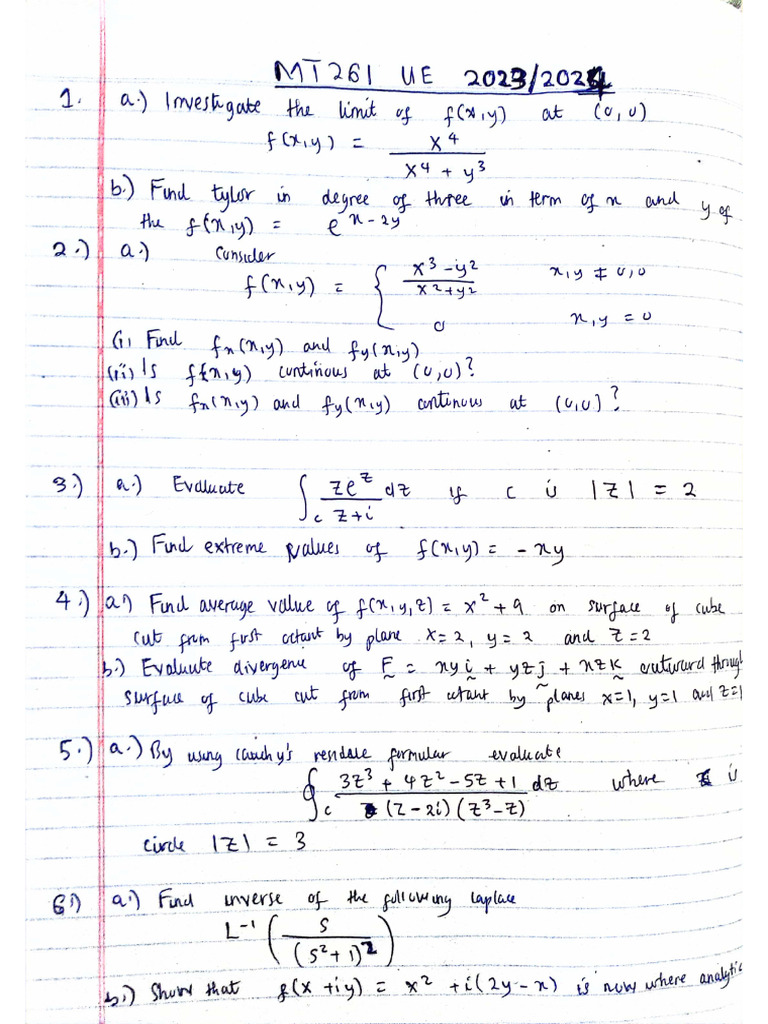 MT261 UE 2023/2024
1. a.) Investigate the limit of f(x,y) at (0,0)
f(x,y) = x^4 / (x^4 + y^3)
b.) Find tylor in degree of three in term of x and y of
the f(x,y) = e^(x-2y)
2.) a.) Consider
f(x,y) = { (x^3 - y^2) / (x^2 + y^2) x,y ≠ 0,0
0 x,y = 0
(i) Find fx(x,y) and fy(x,y)
(ii) Is f(x,y) continous at (0,0)?
(iii) Is fx(x,y) and fy(x,y) continous at (0,0)?
3.) a.) Evaluate ∫c ze^z / (z+i) dz if c is |z| = 2
b.) Find extreme values of f(x,y) = -xy
4.) a.) Find average value of f(x,y,z) = x^2 + 9 on surface of cube
cut from first octant by plane x=2, y=2 and z=2
b.) Evaluate divergence of F = xyi + yzj + xzk outward through
surface of cube cut from first octant by planes x=1, y=1 and z=1
5.) a.) By using cauchy's residale formular evaluate
∮c (3z^3 + 4z^2 - 5z + 1) / ((z-2i)(z^3-z)) dz where is
circle |z| = 3
6.) a.) Find inverse of the following laplace
L^-1 (s / (s^2+1)^2)
b.) Show that f(x+iy) = x^2 + i(2y-x) is now where analytic